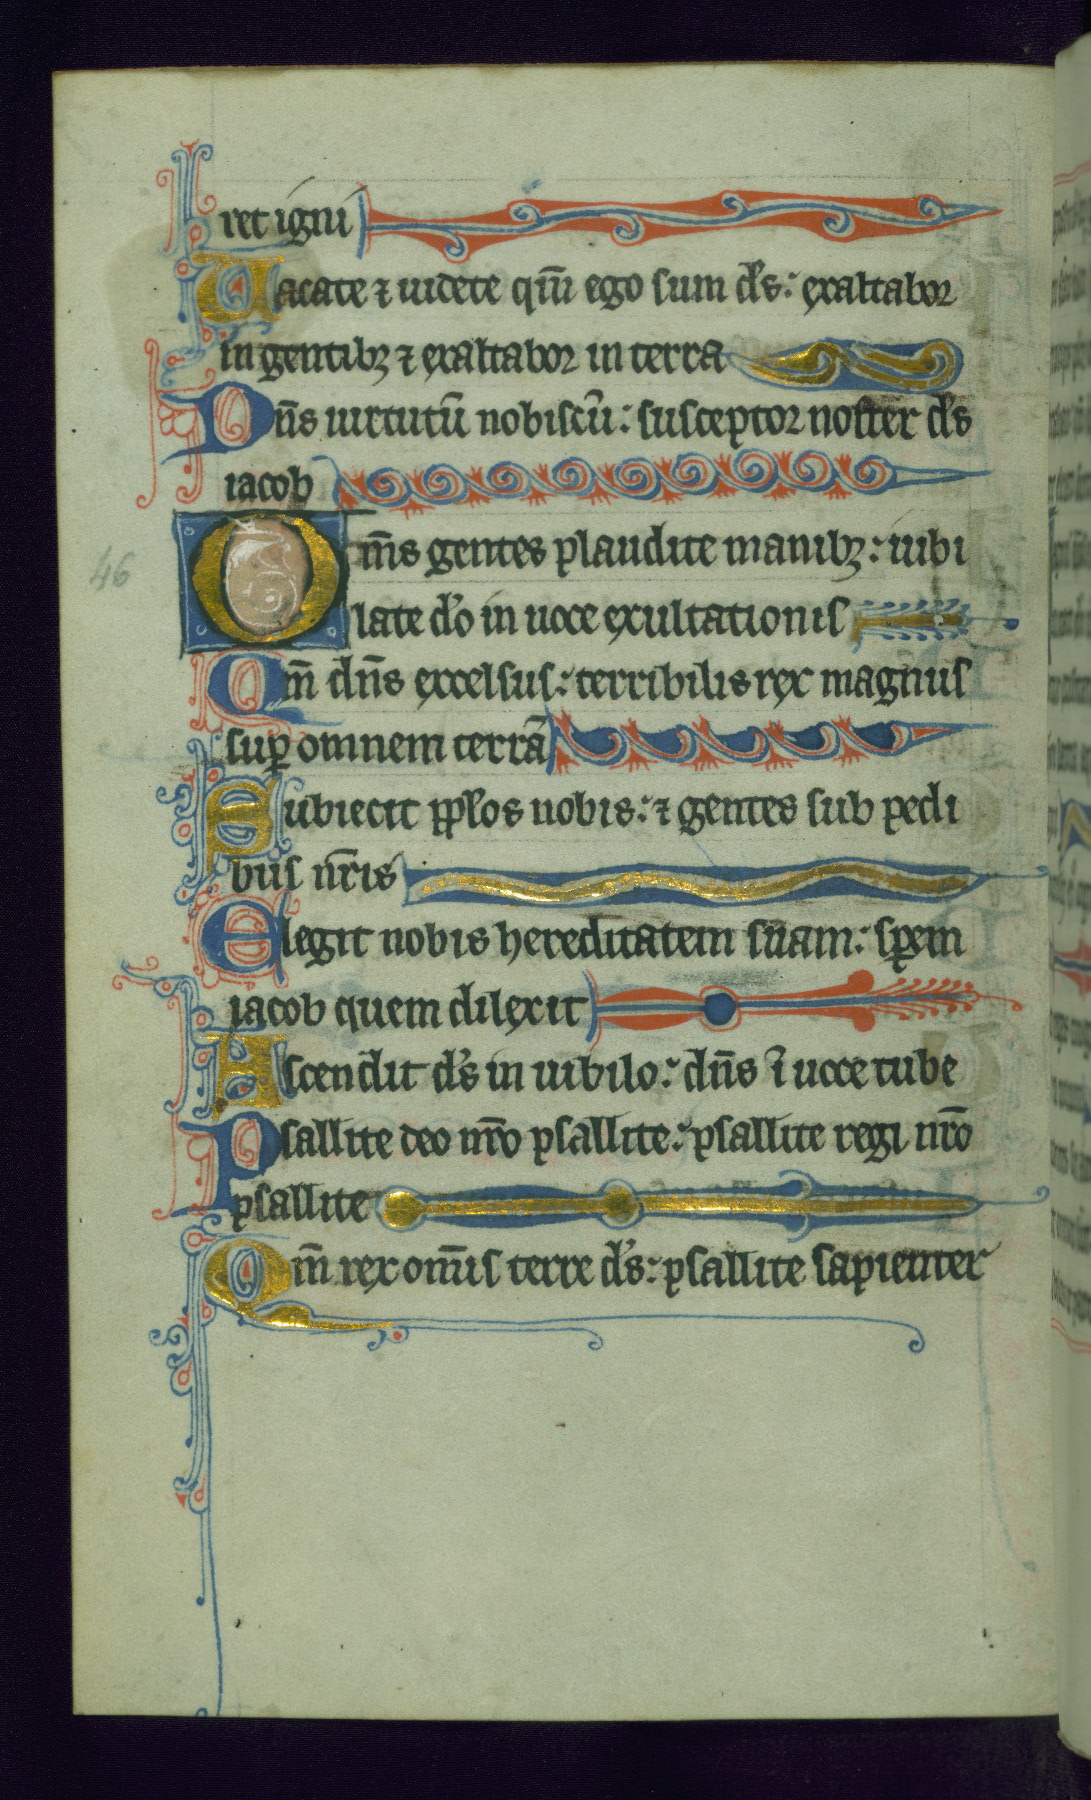 ret igni
Uacate ⁊ uidete qm̄ ego sum ds̄: exaltabor
in gentibꝫ ⁊ exaltabor in terra
Dn̄s uirtutū nobiscū: susceptor noster ds̄
iacob
Om̄s gentes plaudite manibꝫ: iubi
46
late do̅ in uoce exultationis
Qm̄ dn̄s excelsus: terribilis rex magnus
suꝑ omnem terrā
Subiecit ppl̄os nobis: ⁊ gentes sub pedi
bus nr̄is
Elegit nobis hereditatem suam: spem
iacob quem dilexit
Ascendit ds̄ in iubilo: dn̄s ī uoce tube
Psallite deo nr̄o psallite: psallite regi nr̄o
psallite
Qm̄ rex om̄is terre ds̄: psallite sapienter